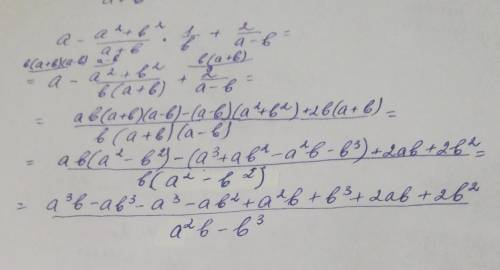 a - (a² + b²)/(a+b) · 1/b + 2/(a-b) =
b(a+b)(a-b) a-b b(a+b)
= a - (a² + b²)/(b(a+b)) + 2/(a-b) =
= (ab(a+b)(a-b) - (a-b)(a²+b²) + 2b(a+b))/(b(a+b)(a-b)) =
= (ab(a² - b²) - (a³ + ab² - a²b - b³) + 2ab + 2b²)/(b(a² - b²)) =
= (a³b - ab³ - a³ - ab² + a²b + b³ + 2ab + 2b²)/(a²b - b³)